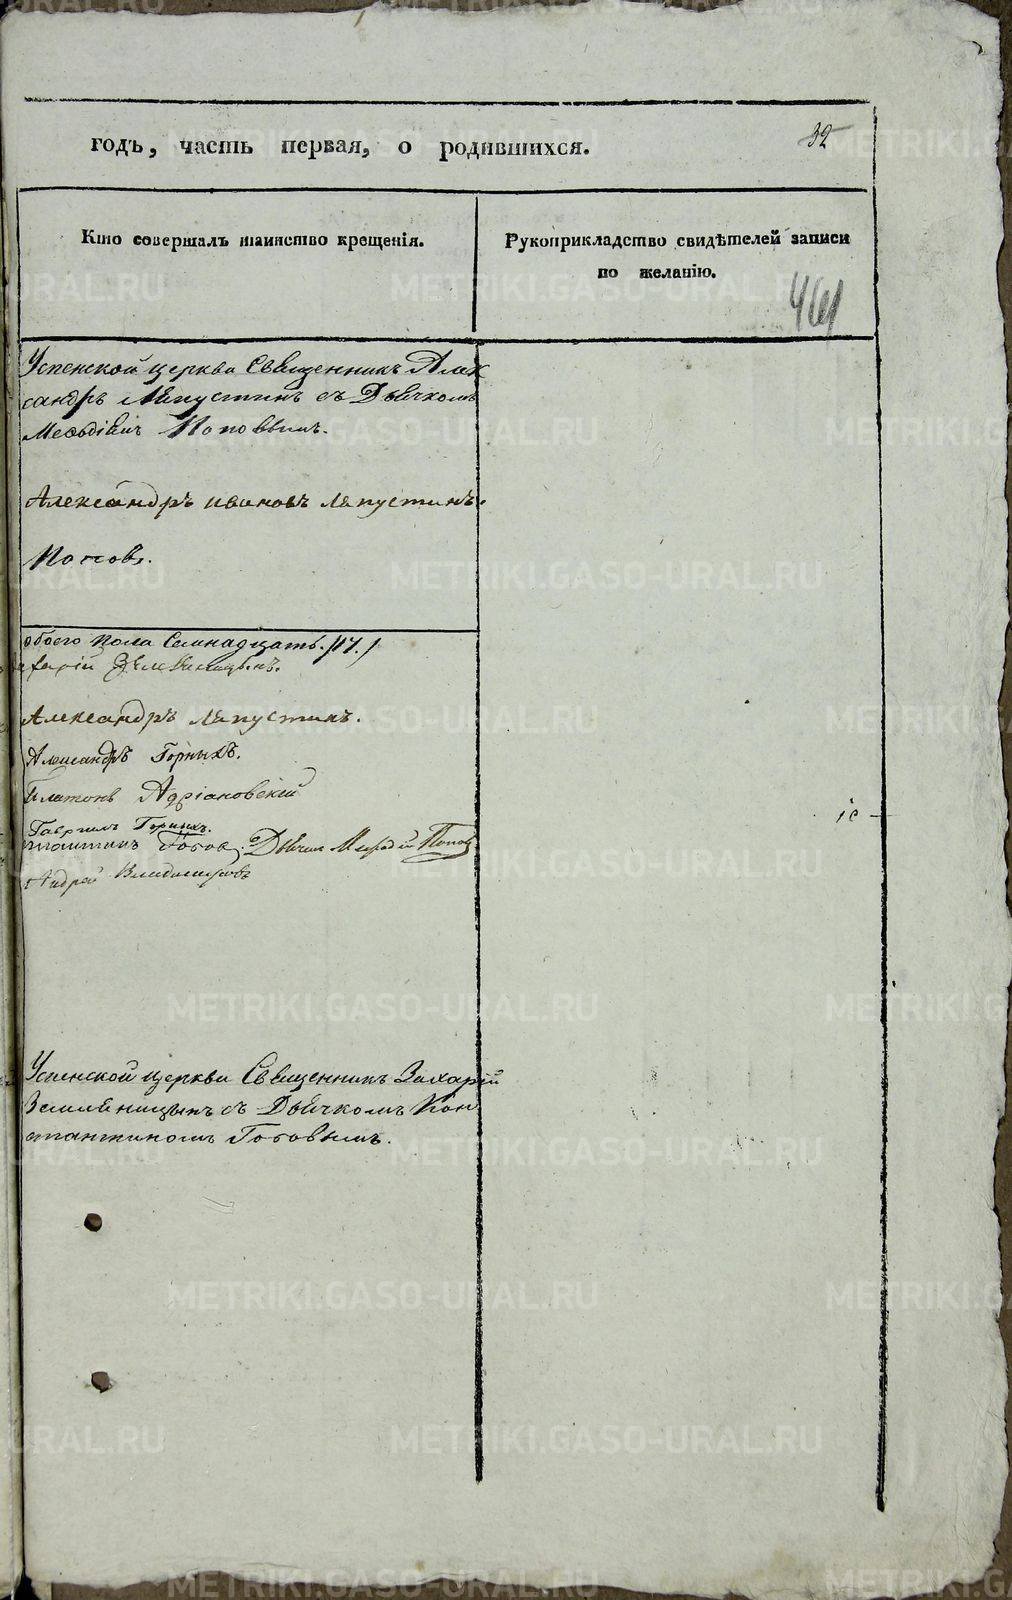 годъ, часть первая, о родившихся.
32
Кто совершалъ таинство крещенія.
Рукоприкладство свидѣтелей записи
по желанію.
461
Успенской церкви Священникъ Алек
сандръ Ляпустинъ съ Дьячкомъ
Меѳодіемъ Поповымъ.
Александръ Ивановъ Ляпустинъ.
Поповъ.
обоего пола Семнадцать. /17./
Захарій Земляницынъ.
Александръ Ляпустинъ.
Александръ Горныхъ.
Платонъ Адріановскій
Гавріилъ Горныхъ.
стантинъ Гоѳовъ. Дьячекъ Меѳодій Поповъ
Андрей Владиміровъ
Успенской церкви Священникъ Захарій
Земляницынъ съ Дьячкомъ Кон
стантиномъ Гоѳовымъ.
METRIKI.GASO-URAL.RU